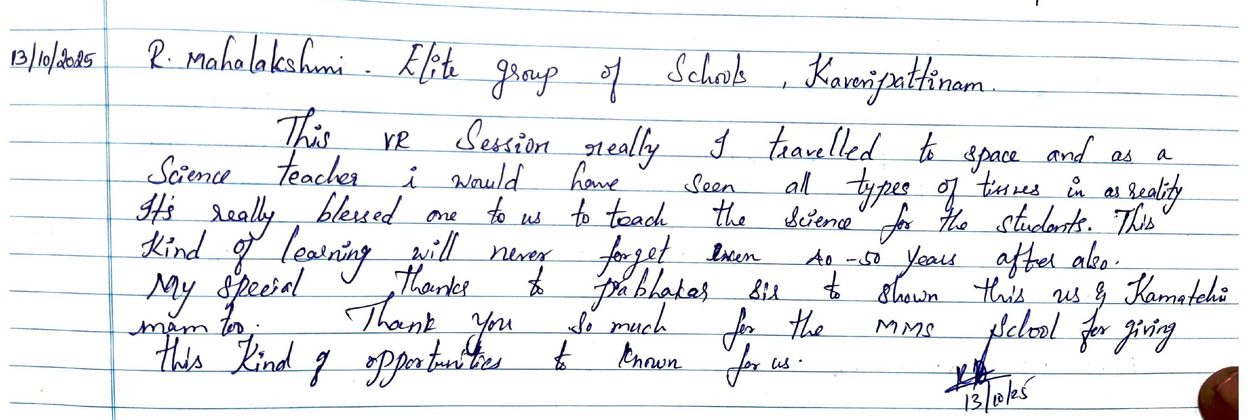 13/10/2025 R. Mahalakshmi. Elite group of Schools, Kaveripattinam.
This VR Session really I travelled to space and as a
Science teacher i would have seen all types of tissues in as reality
It's really blessed one to us to teach the science for the students. This
Kind of learning will never forget even 40-50 years after also.
My special Thanks to prabhakar sir to shown this us & Kamatchi
mam too. Thank you so much for the MMS School for giving
this Kind of opportunities to known for us.
13/10/25